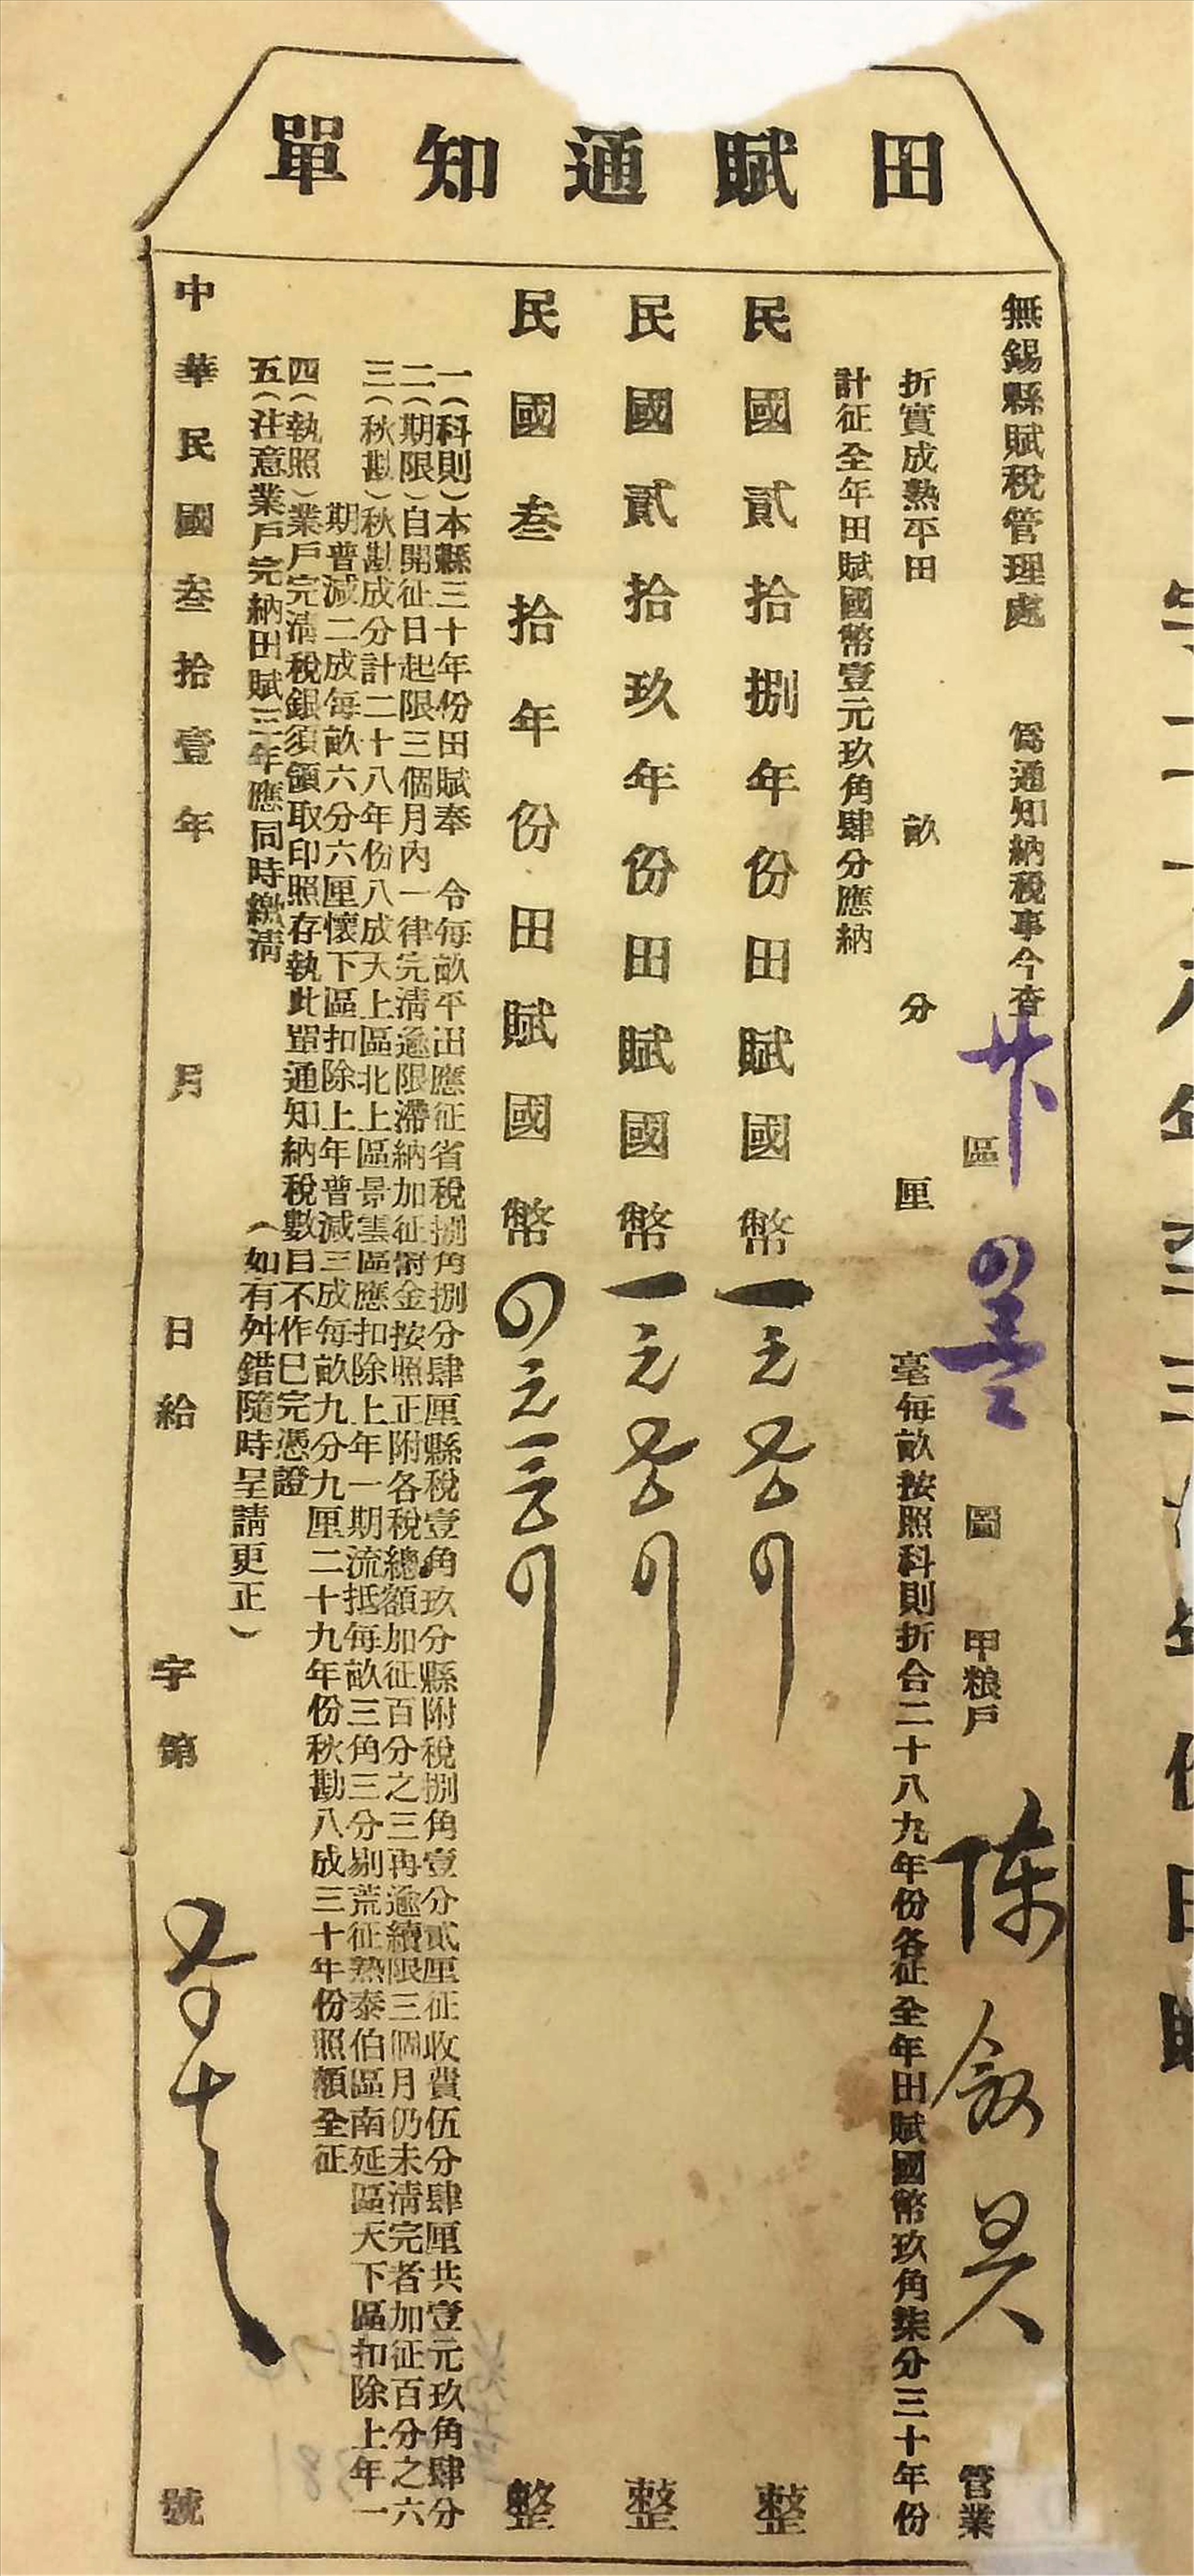 田賦通知單
無錫縣賦稅管理處 爲通知納稅事今查
區 圖 甲粮戶 陈 管業
折實成熟平田 畝 分 厘 毫每畝按照科則折合二十八九年份各征全年田賦國幣玖角柒分三十年份
計征全年田賦國幣壹元玖角肆分應納
民國貳拾捌年份田賦國幣一元 整
民國貳拾玖年份田賦國幣一元 整
民國叁拾年份田賦國幣 整
一(科則)本縣三十年份田賦奉 令每畝平田應征省稅捌角捌分肆厘縣稅壹角玖分縣附稅捌角壹分貳厘征收費伍分肆厘共壹元玖角肆分
二(期限)自開征日起限三個月內一律完清逾限滯納加征罰金按照正附各稅總額加征百分之三再逾續限三個月仍未清完者加征百分之六
三(秋勘)秋勘成分計二十八年份八成天上區北上區景雲區應扣除上年一期流抵每畝三角三分剔荒征熟泰伯區南延區天下區扣除上年一
期普減二成每畝六分六厘懷下區扣除上年普減三成每畝九分九厘二十九年份秋勘八成三十年份照額全征
四(執照)業戶完清稅銀須領取印照存執此單通知納稅數目不作已完憑證
五(注意業戶完納田賦三年應同時繳清 (如有舛錯隨時呈請更正)
中華民國叁拾壹年 月 日給 字第 號